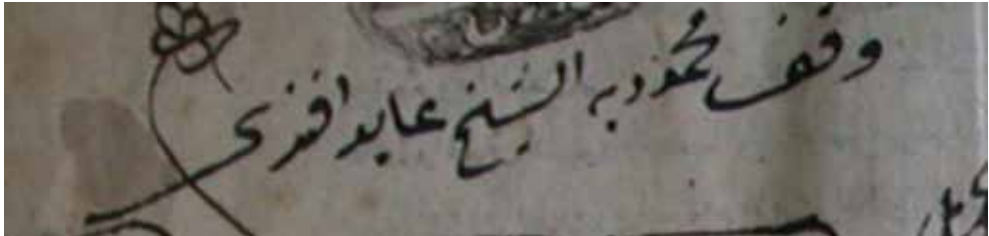 وقف محموديه الشيخ عابد افندى